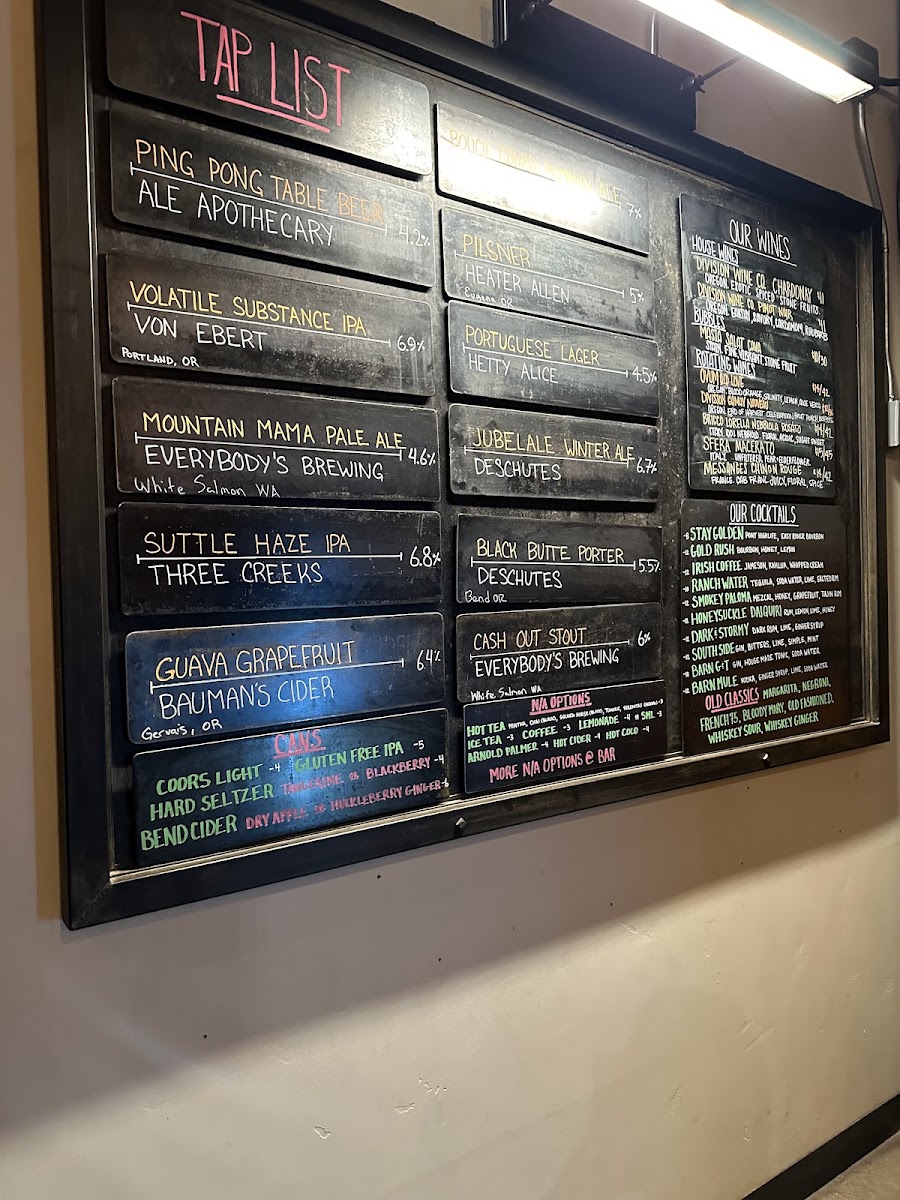 TAP LIST
PING PONG TABLE BEER
4.2%
ALE APOTHECARY
VOLATILE SUBSTANCE IPA
6.9%
VON EBERT
PORTLAND, OR
MOUNTAIN MAMA PALE ALE
4.6%
EVERYBODY'S BREWING
White Salmon WA
SUTTLE HAZE IPA
6.8%
THREE CREEKS
GUAVA GRAPEFRUIT
6.4%
BAUMAN'S CIDER
Gervais, OR
CANS
COORS LIGHT -4 GLUTEN FREE IPA -5
HARD SELTZER TANGERINE OR BLACKBERRY -4
BEND CIDER DRY APPLE OR HUCKLEBERRY GINGER
ALE
7%
PILSNER
5%
HEATER ALLEN
Eugene OR
PORTUGUESE LAGER
4.5%
HETTY ALICE
JUBELALE WINTER ALE
6.7%
DESCHUTES
BLACK BUTTE PORTER
5.5%
DESCHUTES
Bend OR
CASH OUT STOUT
6%
EVERYBODY'S BREWING
White Salmon WA
N/A OPTIONS
HOT TEA
ICE TEA -3 COFFEE -3 LEMONADE -4
ARNOLD PALMER -4 HOT CIDER -4 HOT COCO -4
MORE N/A OPTIONS @ BAR
OUR WINES
HOUSE WINES
DIVISION WINE CO. CHARDONNAY
OREGON. EXOTIC SPICED STONE FRUITS.
DIVISION WINE CO PINOT NOIR
OREGON. EARTHY, SAVORY, CARDAMOM, RHUBARB
BUBBLES
CAVA
ROTATING WINES
SFERA MACERATO
ITALY. UNFILTERED, PEAR + ELDERFLOWER.
CHINON ROUGE
FRANCE. CAB FRANC. JUICY, FLORAL, SPICE
OUR COCKTAILS
STAY GOLDEN PONY HIGHLIFE, EASY RIDER BOURBON
GOLD RUSH BOURBON, HONEY, LEMON
IRISH COFFEE JAMESON, KAHLUA, WHIPPED CREAM
RANCH WATER TEQUILA, SODA WATER, LIME, SALTED RIM
SMOKEY PALOMA MEZCAL, HONEY, GRAPEFRUIT, TAJIN RIM
HONEYSUCKLE DAIQUIRI RUM, LEMON, LIME, HONEY
DARK & STORMY DARK RUM, LIME, GINGER SYRUP
SOUTHSIDE GIN, BITTERS, LIME, SIMPLE, MINT
BARN G+T GIN, HOUSE MADE TONIC, SODA WATER
BARN MULE VODKA, GINGER SYRUP, LIME, SODA WATER
OLD CLASSICS MARGARITA, NEGRONI,
FRENCH 75, BLOODY MARY, OLD FASHIONED,
WHISKEY SOUR, WHISKEY GINGER